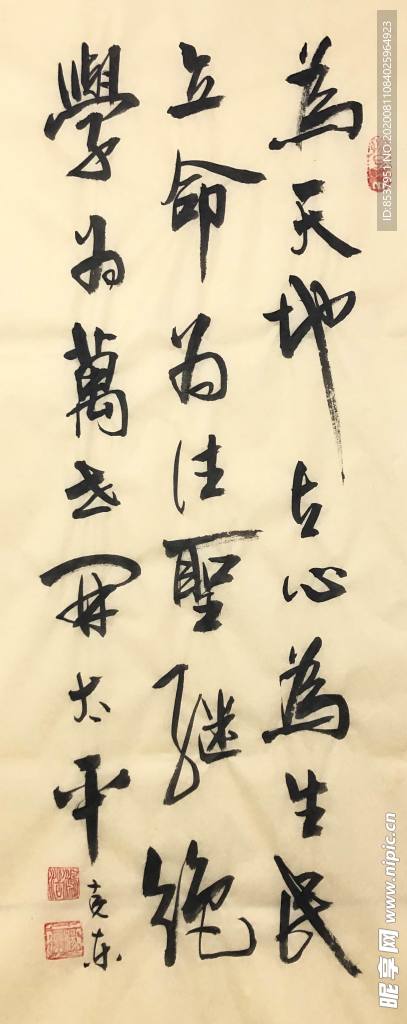 為天地立心為生民
立命為往聖继绝
學為萬世開太平
克东
ID:8537951 NO:20200811084025964923
昵享网 www.nipic.cn